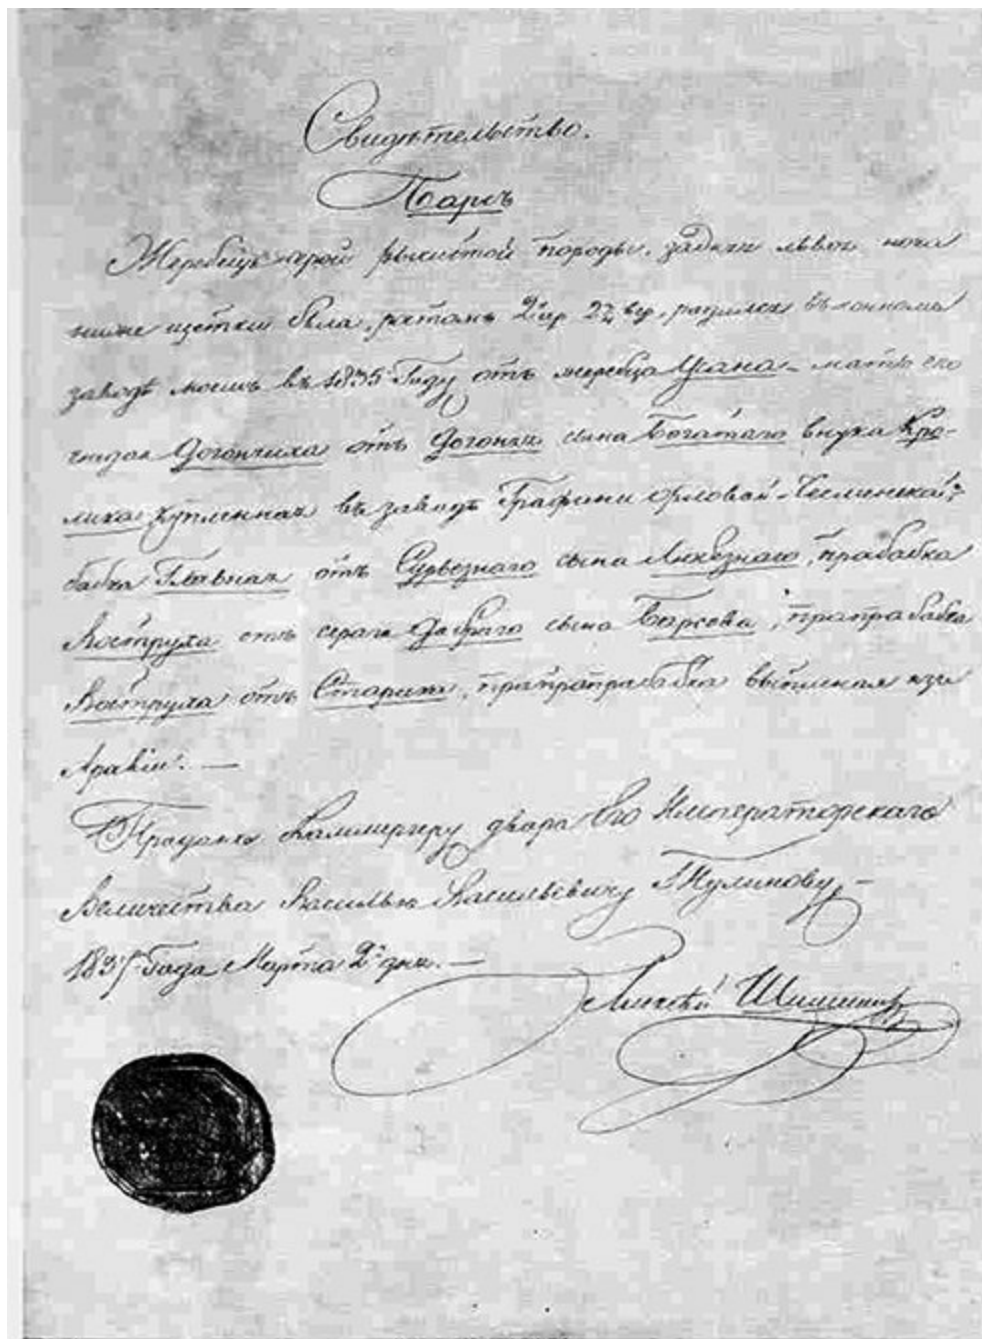 Свидѣтельство.
Барсъ
Жеребецъ серой рысистой породы, задняя лѣвая нога
ниже щетки бѣла, ростомъ 2 ар 2¾ вер, родился въ конномъ
заводѣ моемъ въ 1835 Году отъ жеребца Усана – мать его
гнедая Догончиха отъ Догоняя сына Богатаго внука Кро-
лика купленная въ заводѣ Графини Орловой-Чесминской;
бабка Главная отъ Сурьезнаго сына Любезнаго, прабабка
Кострула отъ сераго Добраго сына Барсова, прапрабабка
Кострула отъ Старика, прапрапрабабка выписная изъ
Аравiи. —
Проданъ Каммергеру двора Его Императорскаго
Величества Василью Васильевичу
Года Марта 2 дня. —
Шишкинъ